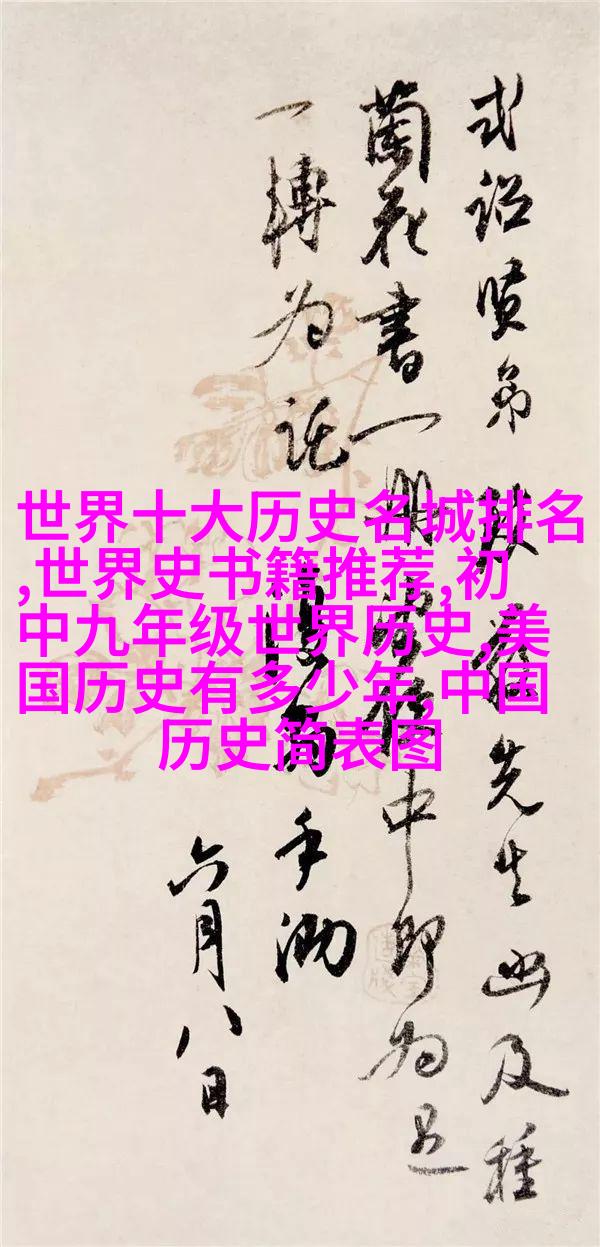 世界十大历史名城排名
,世界史书籍推荐,初
中九年级世界历史,美
国历史有多少年,中国
历史简表图
式詔賢弟 致 先生函及種
蘭花書一冊 中即为
一轉为託 手泐
六月八日